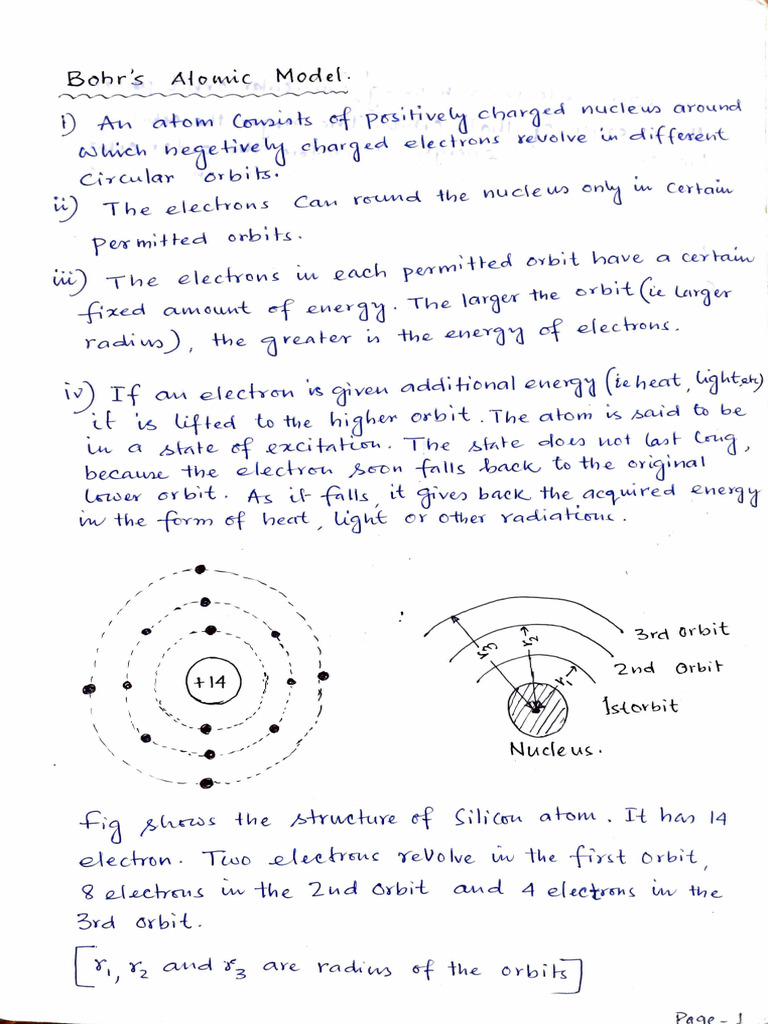 Bohr's Atomic Model.
i) An atom consists of positively charged nucleus around
which negetively charged electrons revolve in different
circular orbits.
ii) The electrons can round the nucleus only in certain
permitted orbits.
iii) The electrons in each permitted orbit have a certain
fixed amount of energy. The larger the orbit (ie larger
radius), the greater is the energy of electrons.
iv) If an electron is given additional energy (ie heat, light, etc)
it is lifted to the higher orbit. The atom is said to be
in a state of excitation. The state does not last long,
because the electron soon falls back to the original
lower orbit. As it falls, it gives back the acquired energy
in the form of heat, light or other radiations.
+14
r3
r2
r1
3rd orbit
2nd Orbit
1st orbit
Nucleus.
Fig shows the structure of Silicon atom. It has 14
electron. Two electrons revolve in the first orbit,
8 electrons in the 2nd orbit and 4 electrons in the
3rd orbit.
[r1, r2 and r3 are radius of the orbits]
Page - 1